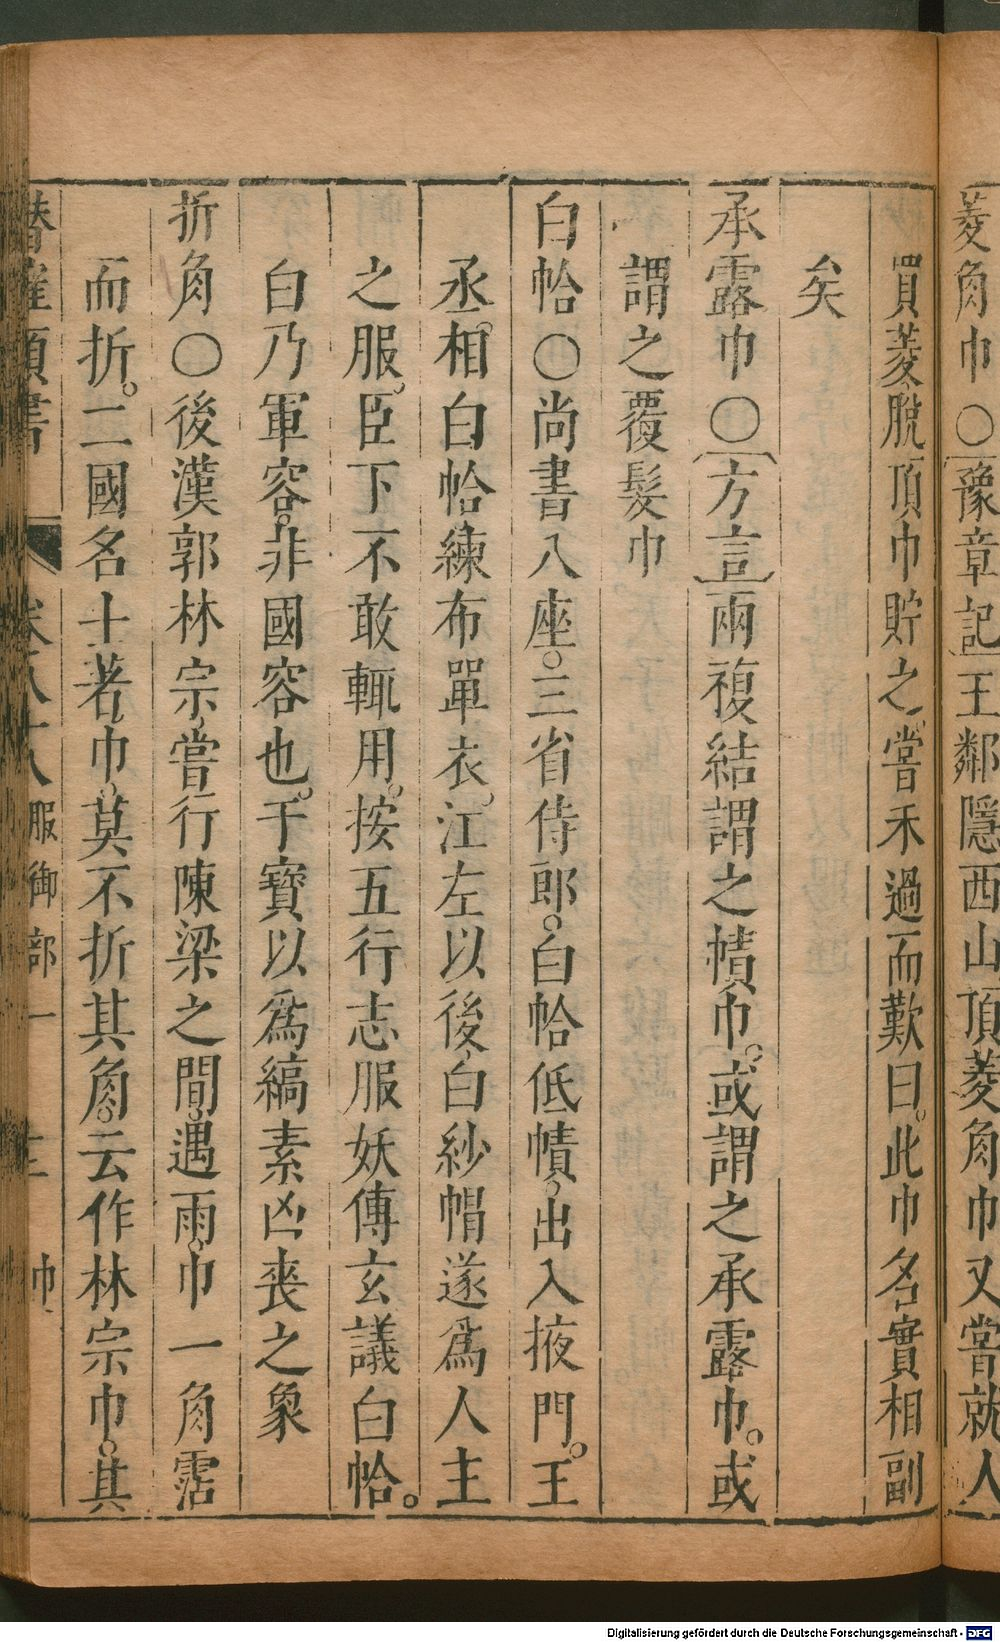 菱角巾○豫章記王鄰隱西山頂菱角巾又嘗就人
買菱脫頂巾貯之嘗禾過而歎曰此巾名實相副
矣
承露巾○方言兩複結謂之幘巾或謂之承露巾或
謂之覆髮巾
白帢○尚書八座三省侍郎白帢低幘出入掖門王
丞相白帢練布單衣江左以後白紗帽遂爲人主
之服臣下不敢輒用按五行志服妖傳玄議白帢
白乃軍容非國容也干寶以爲縞素凶喪之象
折角○後漢郭林宗嘗行陳梁之間遇雨巾一角霑
而折二國名士著巾莫不折其角云作林宗巾其
卷八十八 服御部一 巾
Digitalisierung gefördert durch die Deutsche Forschungsgemeinschaft - DFG